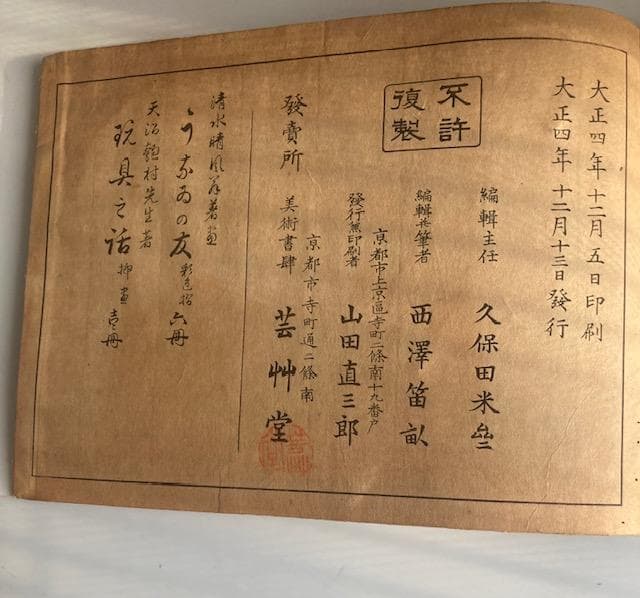 大正四年十二月五日印刷
大正四年十二月十三日發行
不許
復製
編輯主任 久保田米齋
編輯並筆者 西澤笛畝
京都市上京區寺町二條南十九番戸
發行兼印刷者 山田直三郎
京都市寺町通二條南
發賣所 美術書肆 芸艸堂
清水晴風翁著画
うなゐの友 彩色摺 六冊
天沼匏村先生著
玩具之話 挿画 壱冊